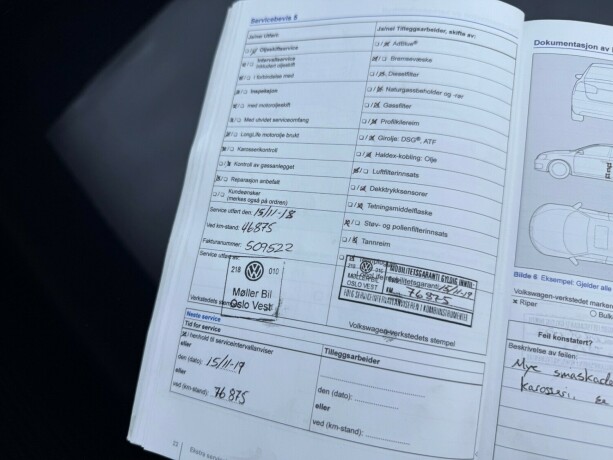 Servicebevis 5
Ja/nei Utført:
Oljeskiftservice
Intervallservice
inkludert oljeskift
I forbindelse med
Inspeksjon
med motoroljeskift
Med utvidet serviceomfang
LongLife motorolje brukt
Karosserikontroll
Kontroll av gassanlegget
Reparasjon anbefalt
Kundeønsker
(merkes også på ordren)
Service utført den: 15/11-18
Ved km-stand: 46875
Fakturanummer: 509522
Service utført av:
218 010
Møller Bil
Oslo Vest
Verkstedets stempel
Ja/nei Tilleggsarbeider, skifte av:
AdBlue®
Bremsevæske
Dieselfilter
Naturgassbeholder og -rør
Gassfilter
Profilkilereim
Girolje: DSG®, ATF
Haldex-kobling: Olje
Luftfilterinnsats
Dekktrykksensorer
Tetningsmiddelflaske
Støv- og pollenfilterinnsats
Tannreim
218 010
OSLO VEST
MOBILITETSGARANTI GYLDIG INNTIL:
15/11-19
KM 76875
Volkswagen-verkstedets stempel
Neste service
Tid for service
I henhold til serviceintervallanviser
eller
den (dato): 15/11-19
eller
ved (km-stand): 76 875
Tilleggsarbeider
den (dato):
eller
ved (km-stand):
22
Dokumentasjon av
Bilde 6 Eksempel: Gjelder alle
Volkswagen-verkstedet marker
Riper
Bulk
Feil konstatert?
Beskrivelse av feilen:
Mye småskade
karosseri.